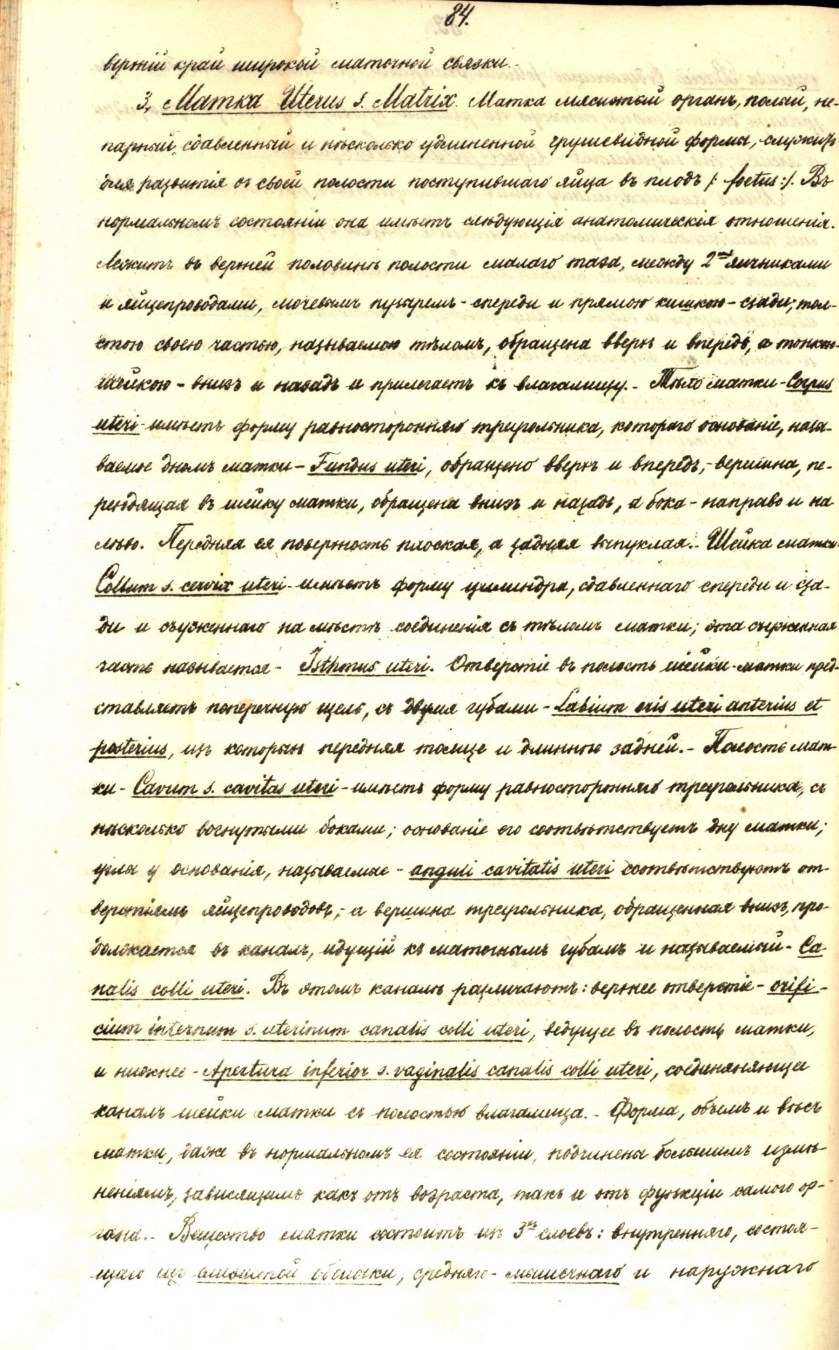 84.
верхній край широкой маточной связки.
3, Матка Uterus s. Matrix. Матка мясистый органъ, полый, не-
парный, сдавленный и нѣсколько удлиненной грушевидной формы, служитъ
для развитія въ своей полости поступившаго яйца въ плодъ /: foetus :/. Въ
нормальномъ состояніи она имѣетъ слѣдующія анатомическія отношенія.
Лежитъ въ верхней половинѣ полости малаго таза, между 2мя яичниками
и яйцепроводами, мочевымъ пузыремъ - спереди и прямою кишкою - сзади; тол-
стою своею частью, называемою тѣломъ, обращена вверхъ и впередъ, а тонкою
шейкою - внизъ и назадъ и прилегаетъ къ влагалищу. - Тѣло матки - Corpus
uteri - имѣетъ форму равносторонняго триугольника, котораго основаніе, назы-
ваемое дномъ матки - Fundus uteri, обращено вверхъ и впередъ, - вершина, пе-
реходящая въ шейку матки, обращена внизъ и назадъ, а бока - направо и на-
лѣво. Передняя ея поверхность плоская, а задняя выпуклая. - Шейка матки -
Collum s. cervix uteri - имѣетъ форму цилиндра, сдавленнаго спереди и сза-
ди и съуженнаго на мѣстѣ соединенія съ тѣломъ матки; эта съуженная
часть называется - Isthmus uteri. Отверстіе въ полость шейки матки пред-
ставляетъ поперечную щель, съ двумя губами - Labium oris uteri anterius et
posterius, изъ которыхъ передняя толще и длиннѣе задней. - Полость мат-
ки - Cavum s. cavitas uteri - имѣетъ форму равносторонняго треугольника, съ
нѣсколько вогнутыми боками; основаніе его соотвѣтствуетъ дну матки;
углы у основанія, называемые - anguli cavitatis uteri соотвѣтствуютъ от-
верстіямъ яйцепроводовъ, - а вершина треугольника, обращенная внизъ, про-
должается въ каналъ, идущій къ маточнымъ губамъ и называемый - Ca-
nalis colli uteri. Въ этомъ каналѣ различаютъ: верхнее отверстіе - orifi-
cium internum s. uterinum canalis colli uteri, ведущее въ полость матки,
и нижнее - Apertura inferior s. vaginalis canalis colli uteri, соединяняющее
каналъ шейки матки съ полостью влагалища. - Форма, объемъ и вѣсъ
матки, даже въ нормальномъ ея состояніи, подчинены большимъ измѣ-
неніямъ, зависящимъ какъ отъ возраста, такъ и отъ функціи самого ор-
гана. - Вещество матки состоитъ изъ 3хъ слоевъ: внутренняго, состоя-
щаго изъ слизистой оболочки, средняго - мышечнаго и наружнаго